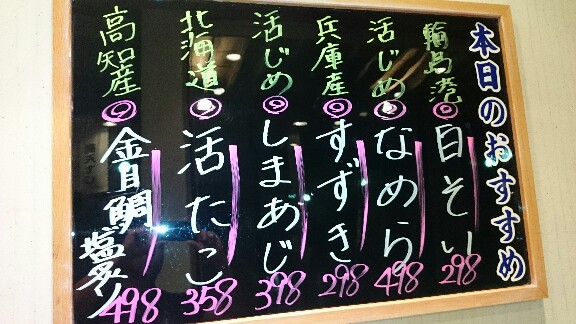 本日のおすすめ
輪島港 目そい 298
活じめ なめら 498
兵庫産 すずき 298
活じめ しまあじ 398
北海道 活たこ 358
高知産 金目鯛塩炙り 498